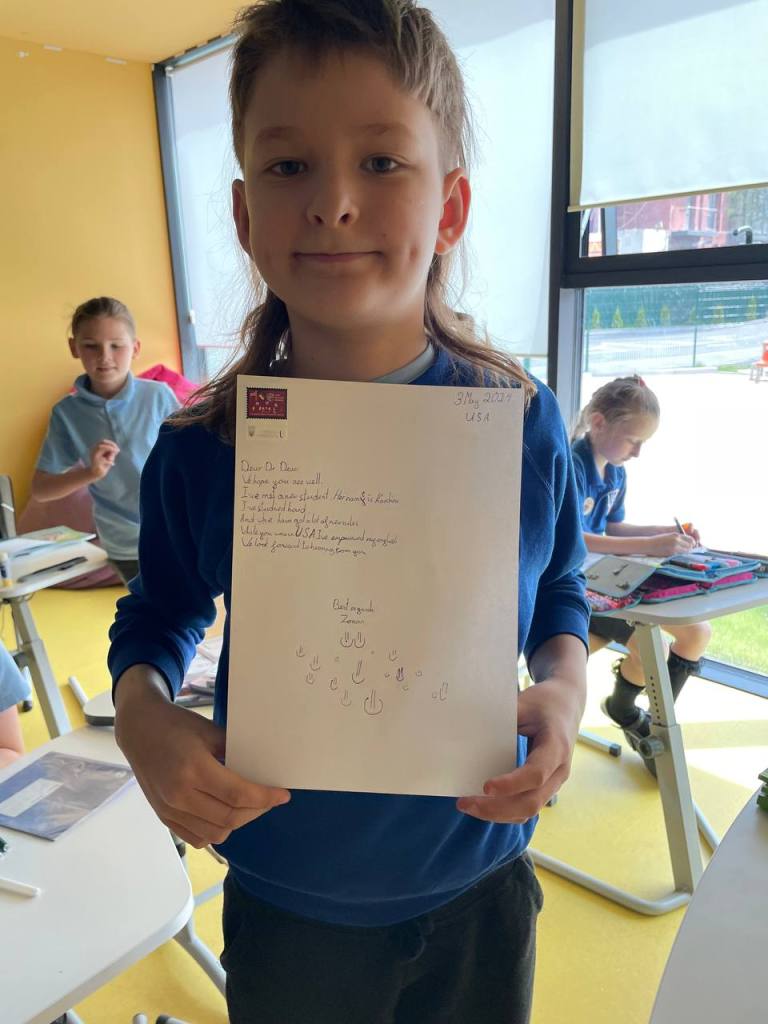 3 May 2024
USA
Dear Dr Dear
We hope you are well.
I've met a new student. Her name is
I've studied hard
And have got a lot of new rules
While you were in USA I've empowered my english
We look forward to hearing from you
Best regards
Zenan